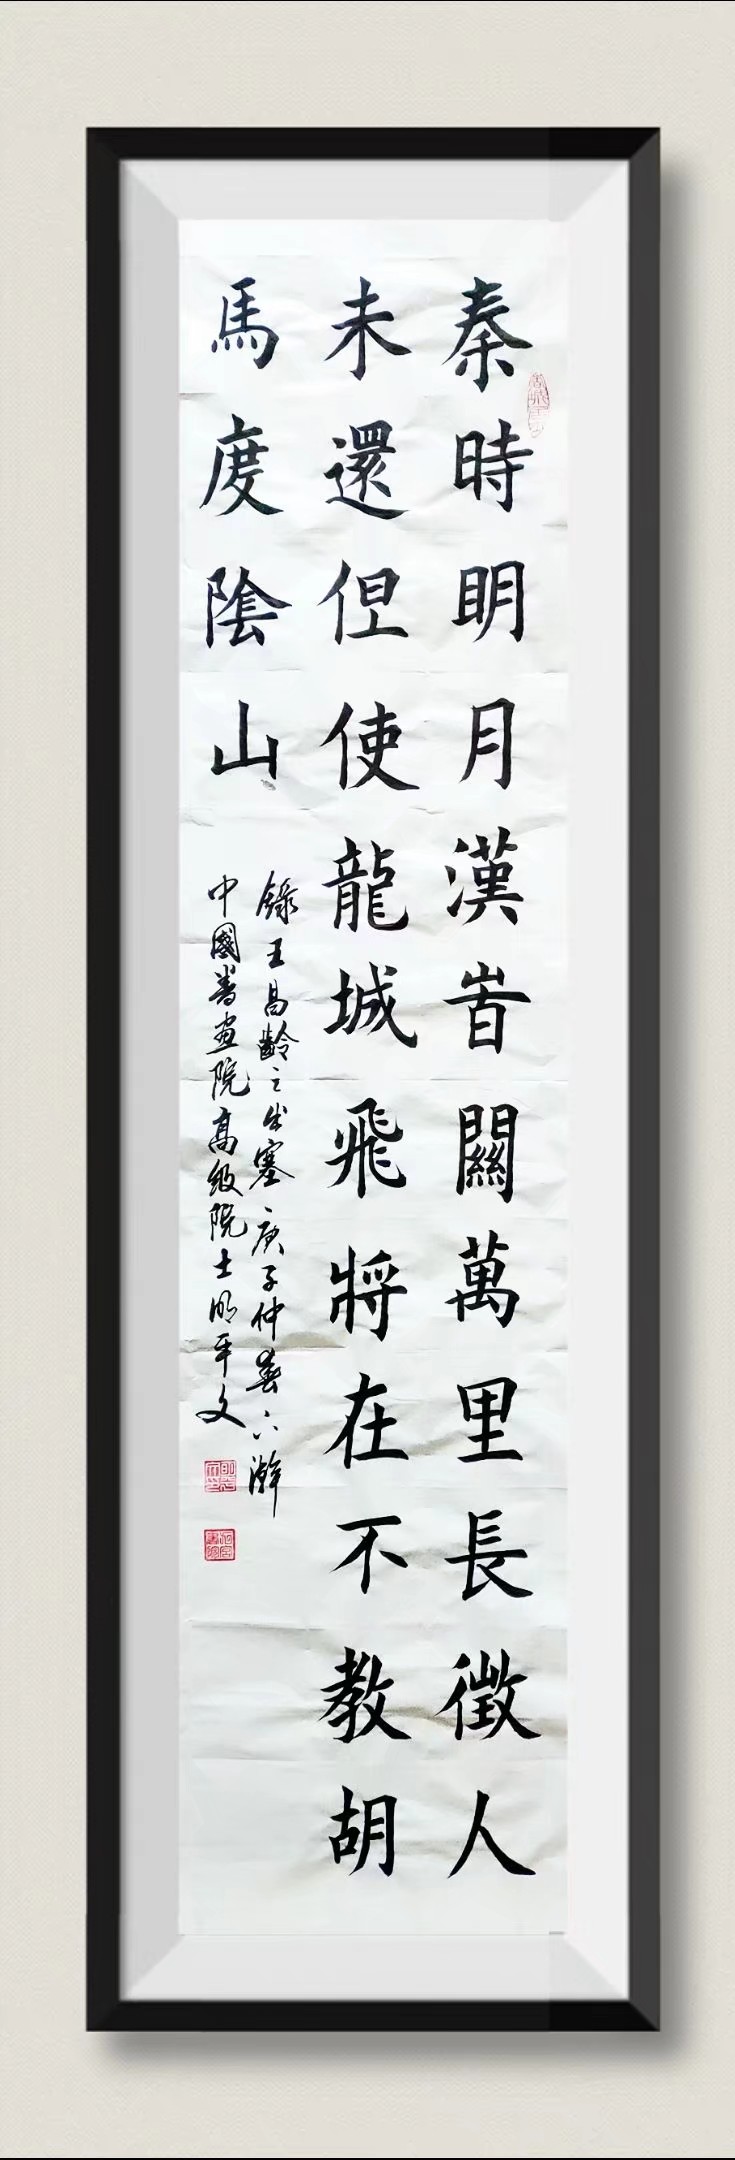 秦時明月漢時關萬里長徵人
未還但使龍城飛將在不教胡
馬度陰山
錄王昌齡之出塞庚子仲春六瀚
中國書畫院高級院士明平文